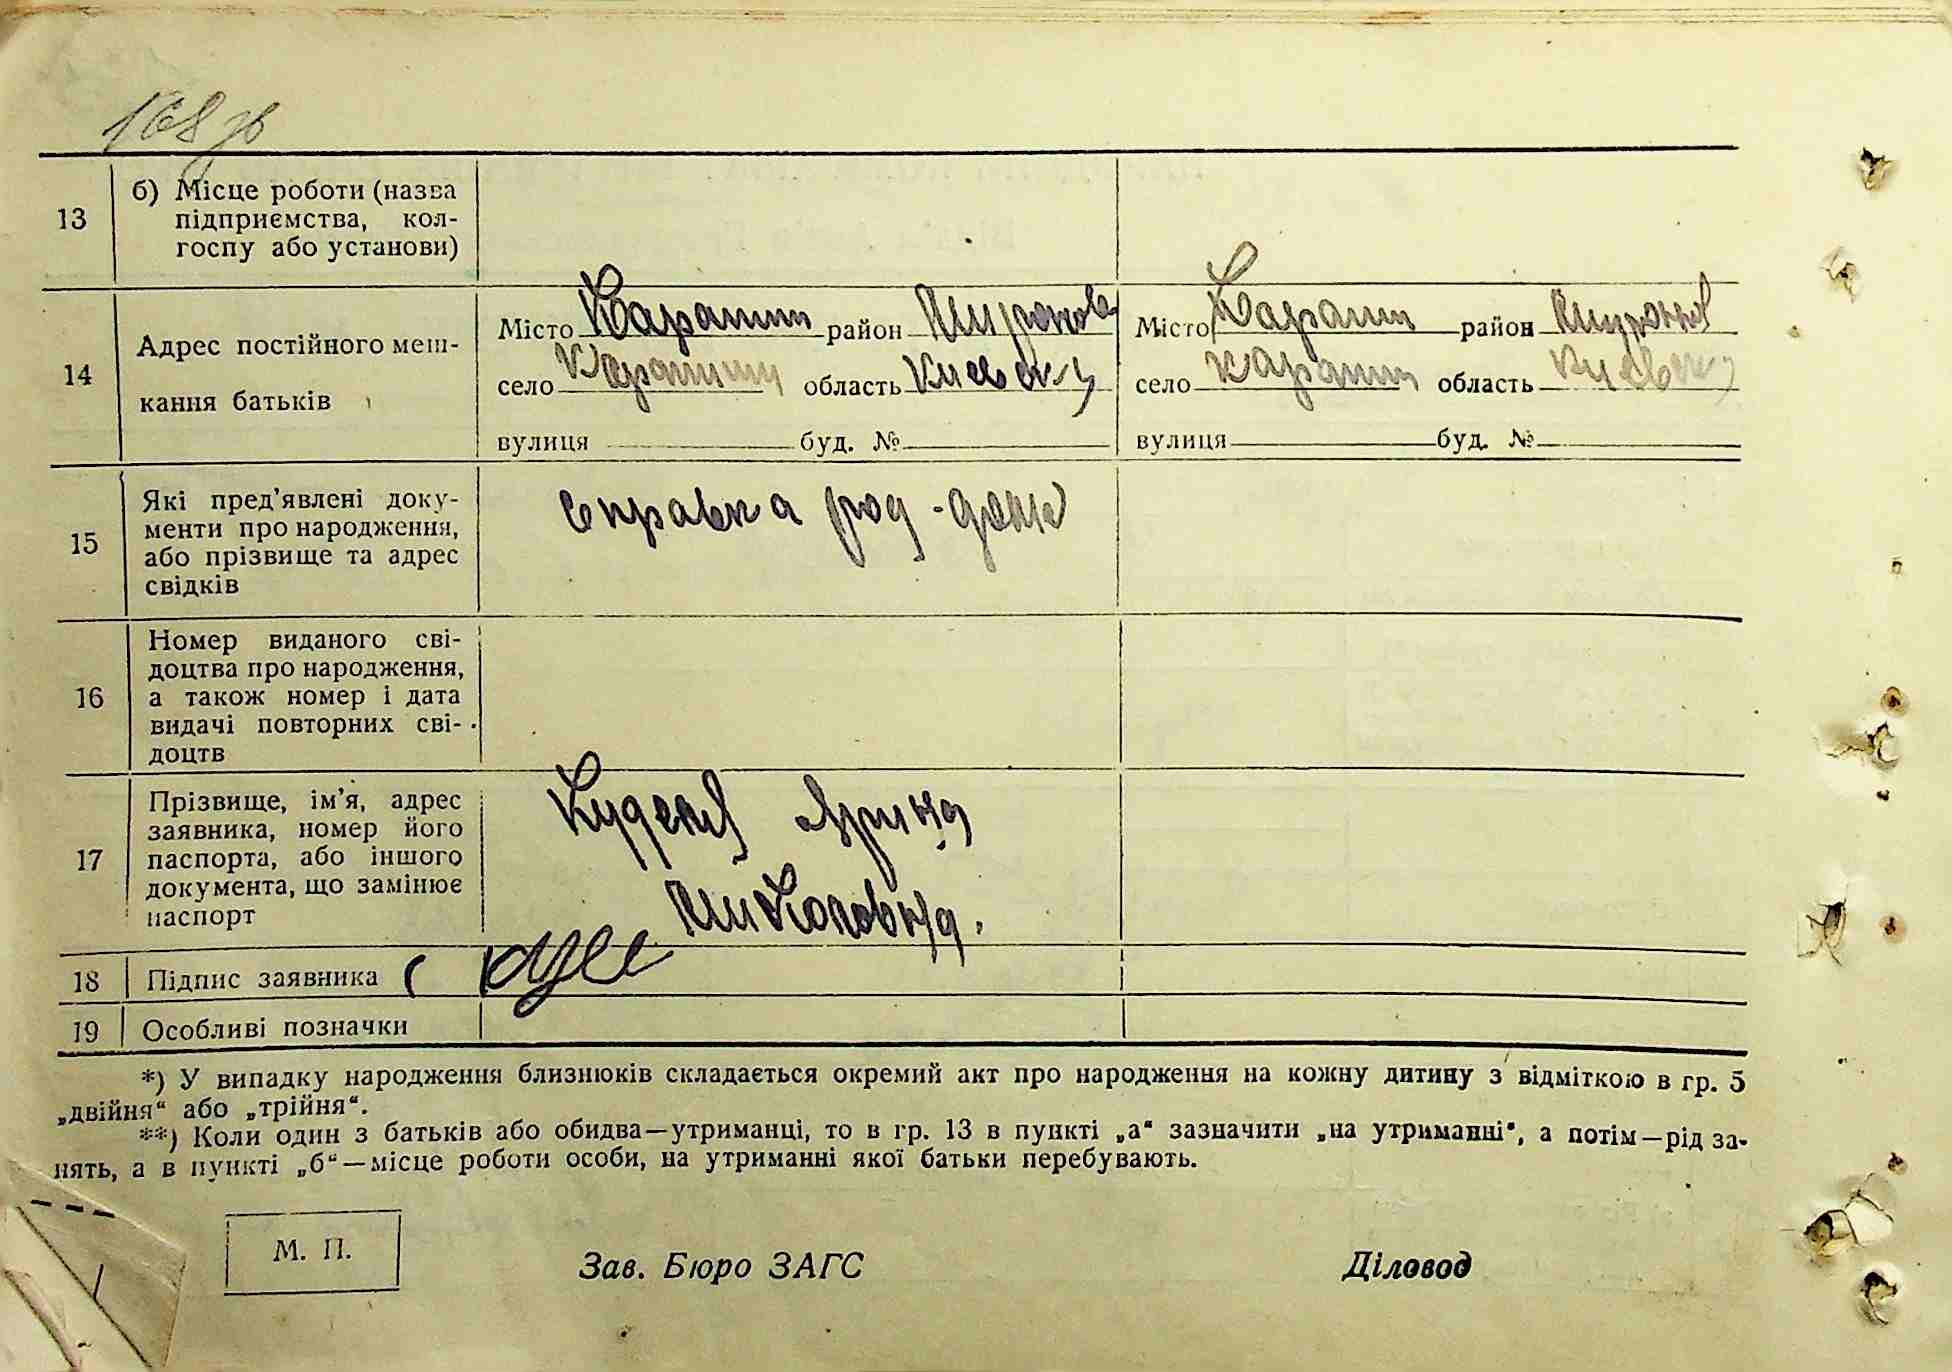 168 зв
13 б) Місце роботи (назва
підприємства, кол-
госпу або установи)
14 Адрес постійного меш-
кання батьків
Місто Карапиш район Миронов
село Карапиши область Киевск
вулиця буд. №
Місто Карапиш район Миронов
село Карапиш область Киевск
вулиця буд. №
15 Які пред'явлені доку-
менти про народження,
або прізвище та адрес
свідків
Справка род-дома
16 Номер виданого сві-
доцтва про народження,
а також номер і дата
видачі повторних сві-
доцтв
17 Прізвище, ім'я, адрес
заявника, номер його
паспорта, або іншого
документа, що замінює
паспорт
Ярина
Миколовна.
18 Підпис заявника
19 Особливі позначки
*) У випадку народження близнюків складається окремий акт про народження на кожну дитину з відміткою в гр. 5
„двійня“ або „трійня“.
**) Коли один з батьків або обидва—утриманці, то в гр. 13 в пункті „а“ зазначити „на утриманні“, а потім—рід за-
нять, а в пункті „б“—місце роботи особи, на утриманні якої батьки перебувають.
М. П.
Зав. Бюро ЗАГС
Діловод